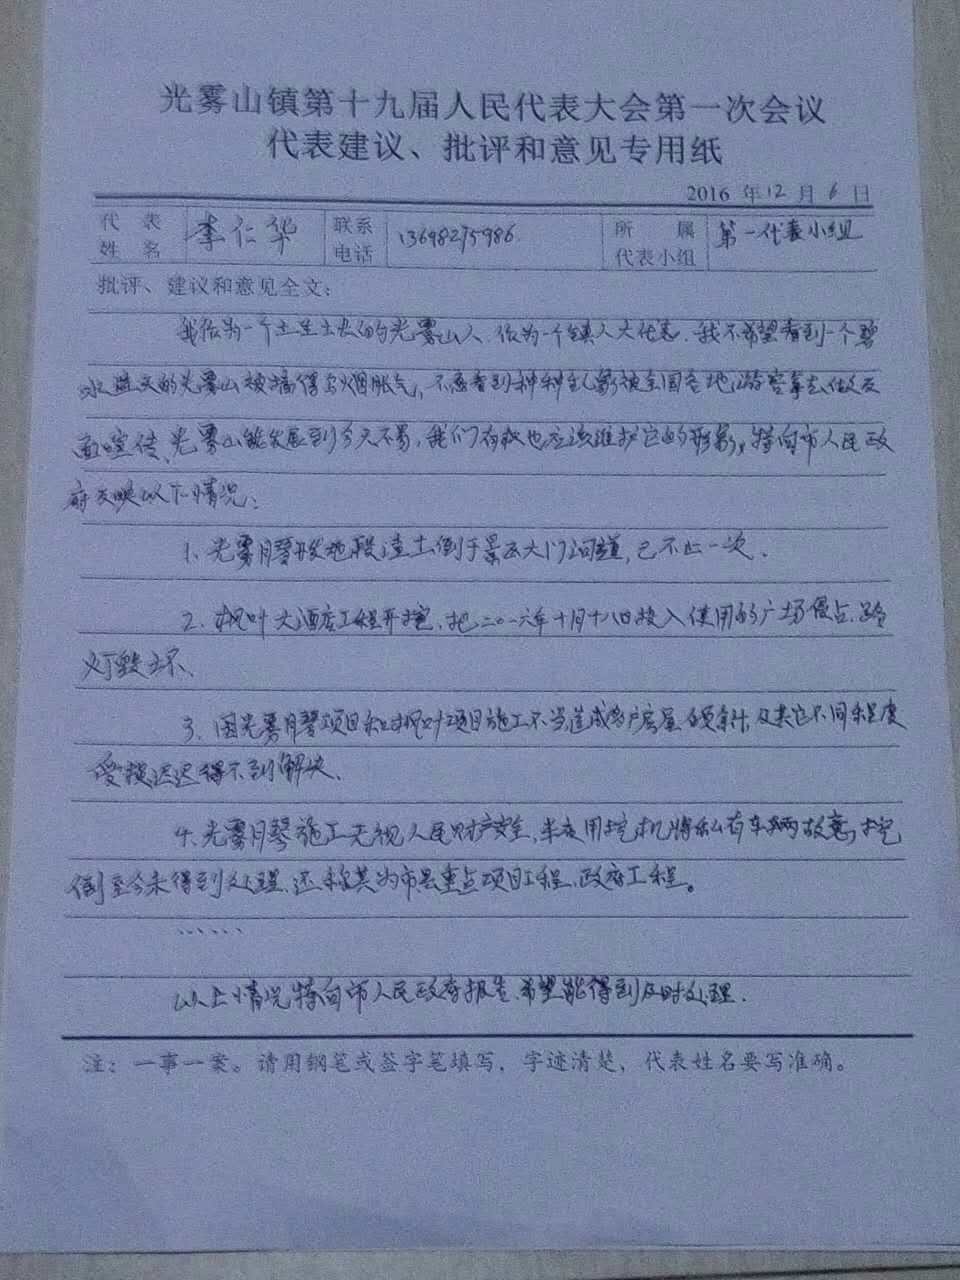 光雾山镇第十九届人民代表大会第一次会议
代表建议、批评和意见专用纸
2016 年 12 月 6 日
代表姓名 李仁华 联系电话 13698275986 所属代表小组 第一代表小组
批评、建议和意见全文：
我作为一个土生土长的光雾山人、作为一个镇人大代表、我不希望看到一个碧
水蓝天的光雾山被搞得乌烟胀气，不愿看到种种乱象被全国各地游客拿去做反
面宣传、光雾山能发展到今天不易，我们有权也应该维护它的形象，特向市人民政
府反映以下情况：
1、光雾月琴开发地段渣土倒于景区大门河道，已不止一次、
2、枫叶大酒店工程开挖、把二0一六年十月十八日投入使用的广场侵占、路
灯毁坏、
3、因光雾月琴项目和枫叶项目施工不当造成多户房屋 及其它不同程度
受损迟迟得不到解决、
4、光雾月琴施工无视人民财产安全、半夜用挖机将私有车辆故意挖
倒至今未得到处理、还称其为市县重点项目工程、政府工程。
、、、、、、
以上情况特向市人民政府报告、希望能得到及时处理.
注：一事一案。请用钢笔或签字笔填写，字迹清楚，代表姓名要写准确。